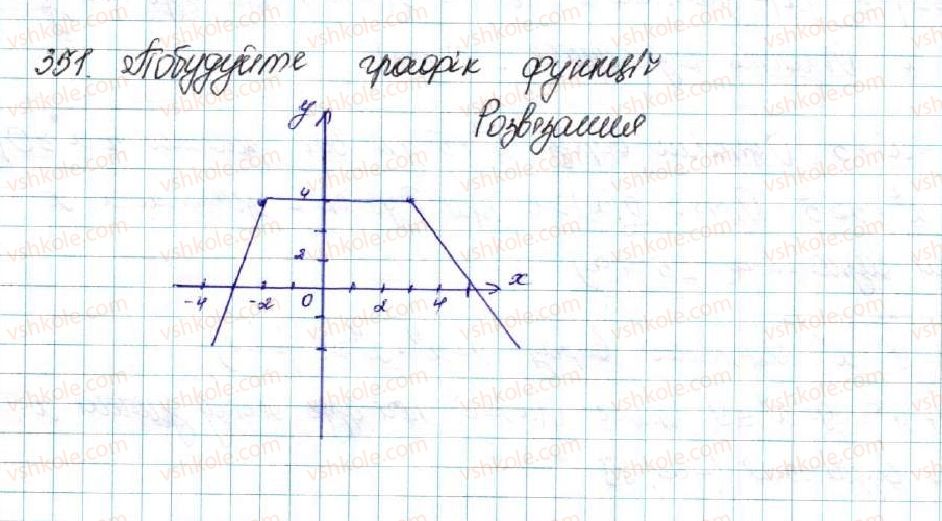 351. Побудуйте графік функції
Розв'язання
y
4
2
-4 -2 0 2 4 x